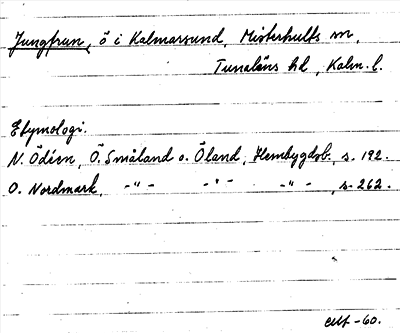 Jungfrun, ö i Kalmarsund, Misterhults sn,
Tunaläns hd, Kalm. l.
Etymologi.
N. Ödéen, Ö. Småland o. Öland, Hembygdsb., s. 192.
O. Nordmark, -"- -"- -"-, s. 262.
-60.